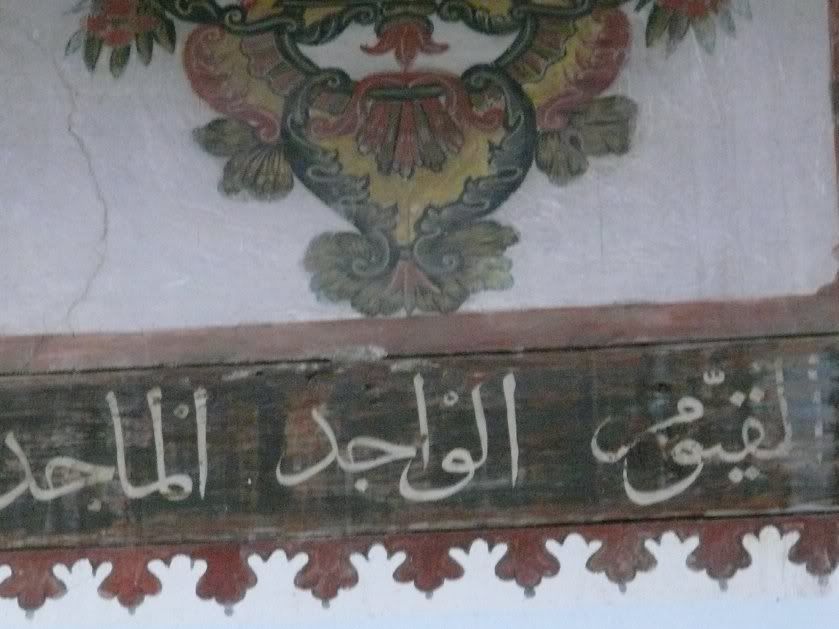 لقيّوم الواجد الماجد